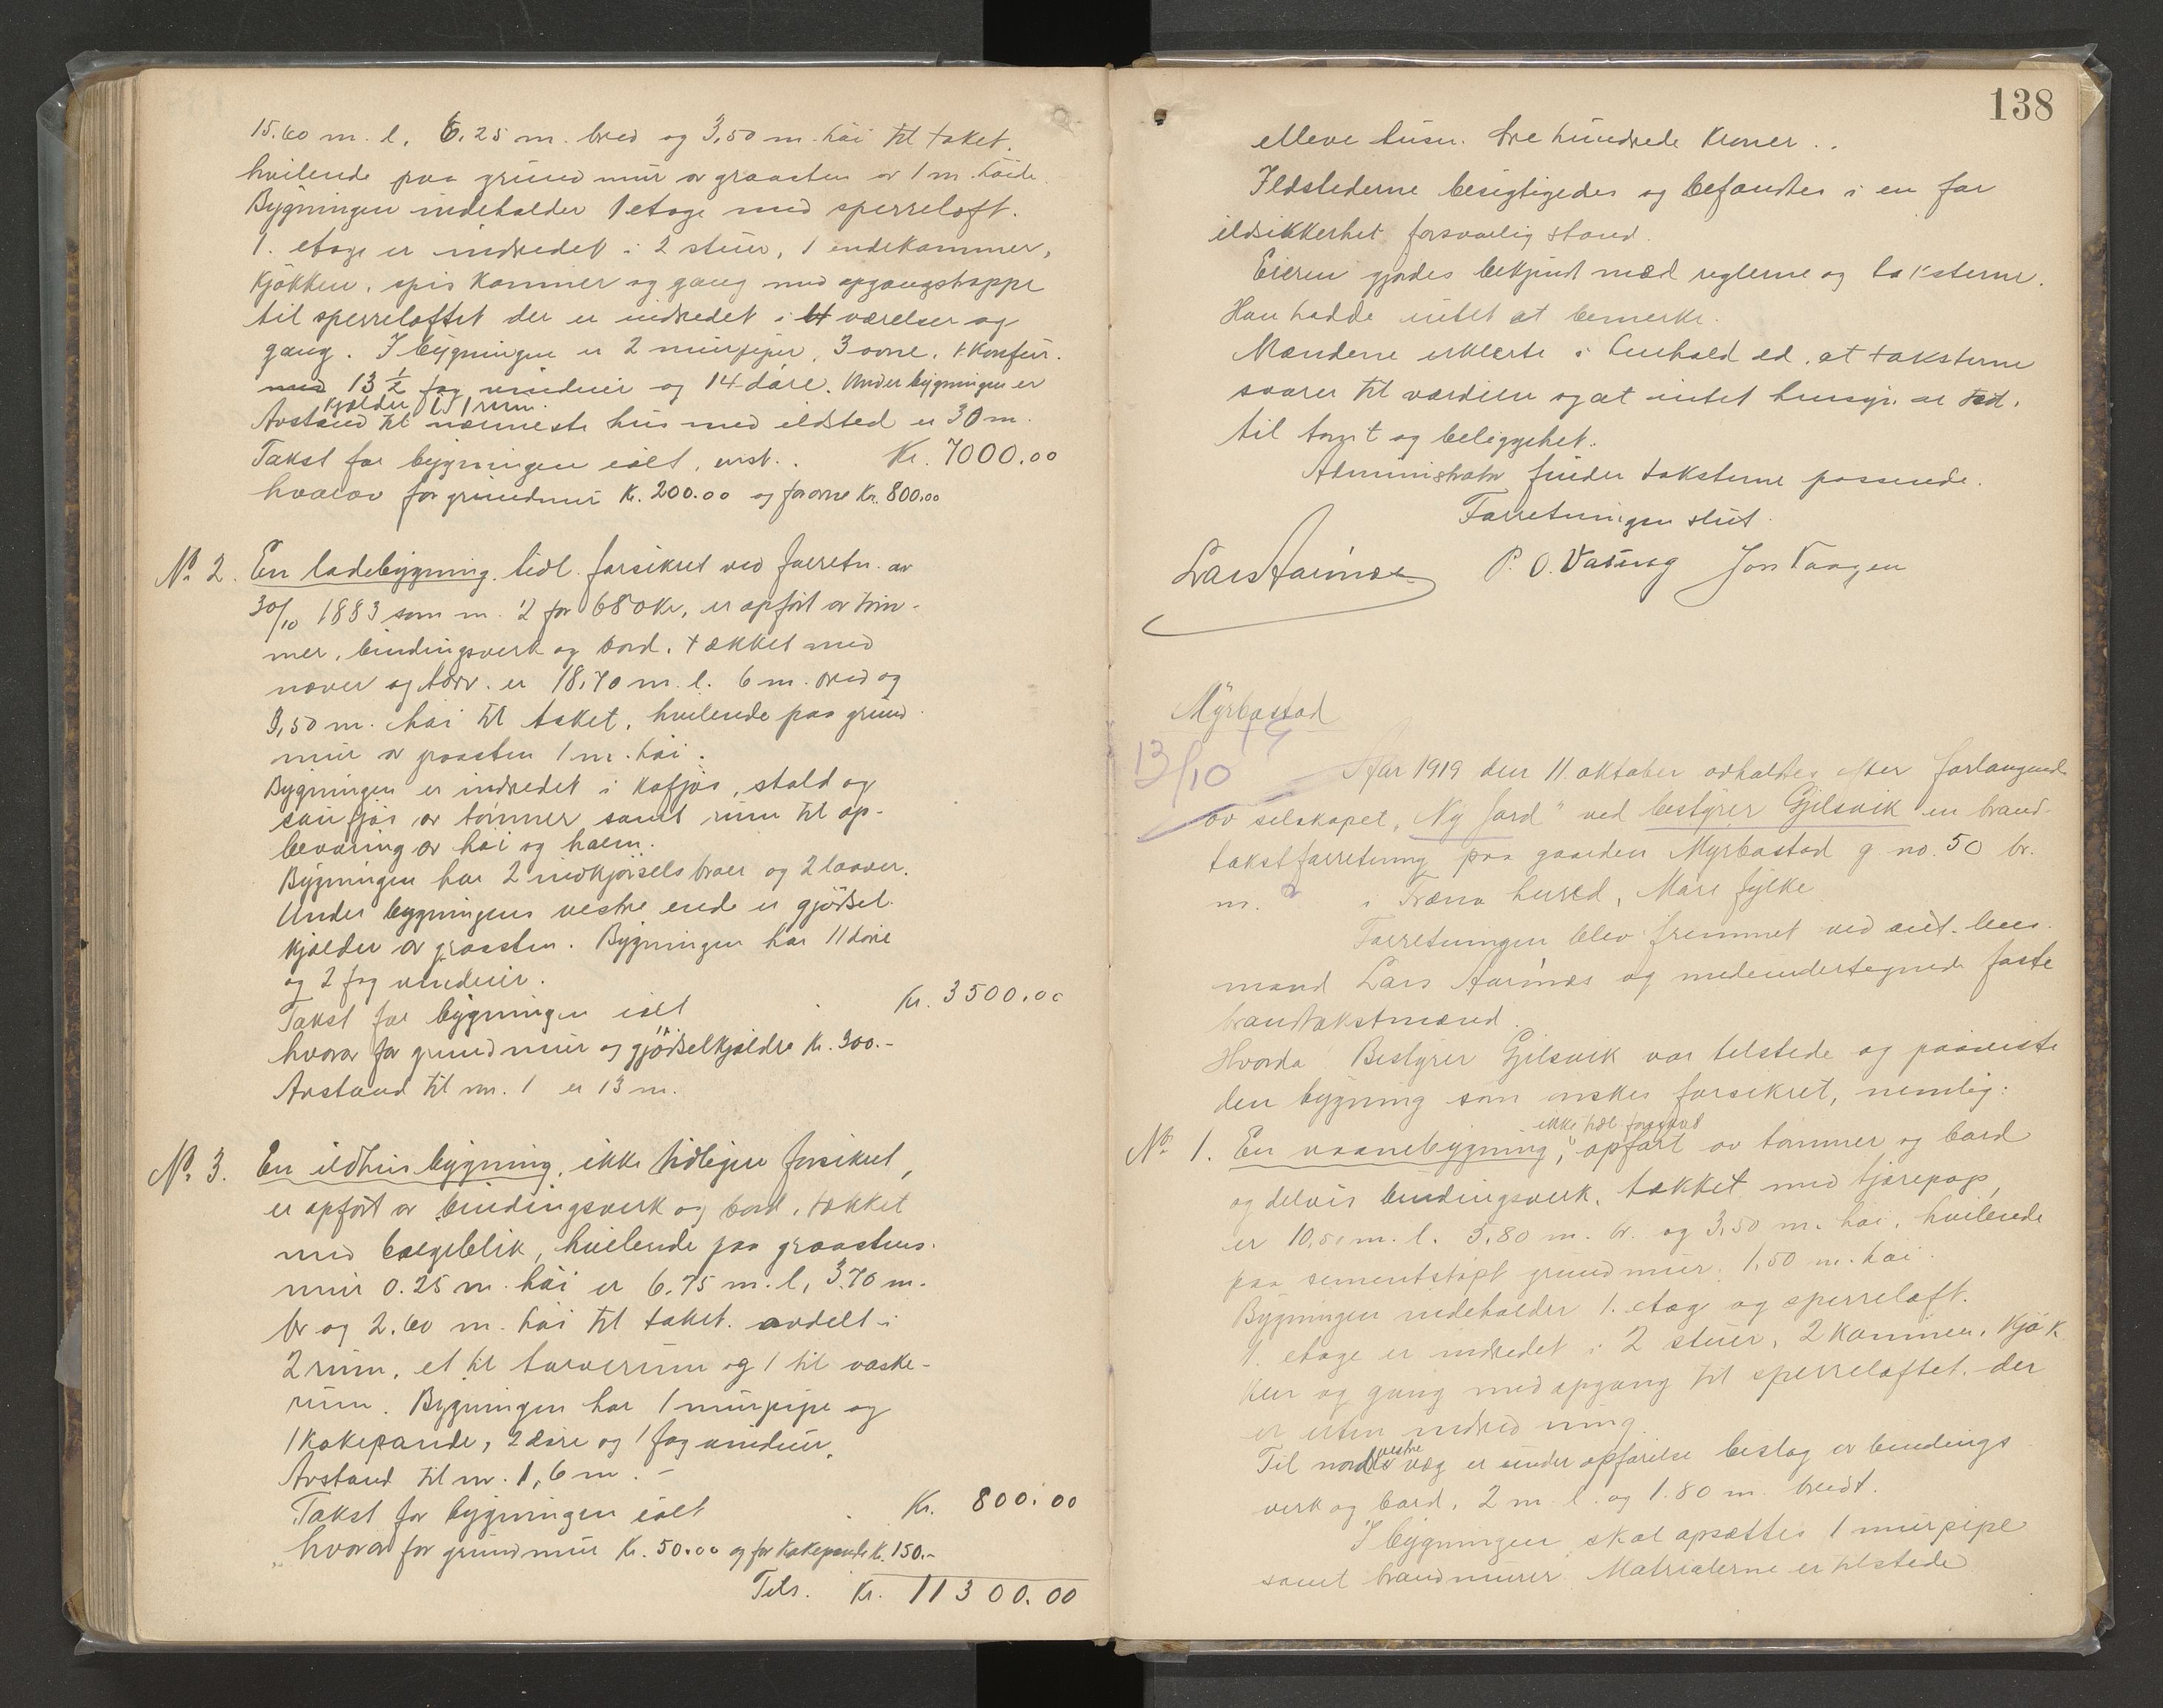 15.60 m. l. 6.25 m. bred og 3,50 m. höi til taket.
hvilende paa grundmur av graasten av 1 m. höide.
Bygningen indeholder 1 etage med sperreloft.
1. etage er indredet i 2 stuer, 1 endekammer,
kjökken, spiskammer og gang med opgangstrappe
til sperreloftet der er indredet i 4 værelser og
gang. I bygningen er 2 murpiper, 3 ovne, 1 komfur.
med 13 1/2 fag vinduer og 14 döre. Under bygningen er
kjælder i 1 rum.
Avstand til nærmeste hus med ildsted er 30 m.
Takst for bygningen ialt, Kr. 7000.00
hvorav for grundmur Kr. 200.00 og for ovne Kr. 800.00
No. 2. En ladebygning, tidl. forsikret ved forretn. av
30/10 1883 som nr. 2 for 680 Kr, er opfört av töm-
mer, bindingsverk og bord, tækket med
næver og törv. er 18,70 m. l. 6 m. bred og
3,50 m. höi til taket, hvilende paa grund
mur av graasten 1 m. höi.
Bygningen er indredet i kofjös, stald og
saufjös av tömmer samt rum til op-
bevaring av höi og halm.
Bygningen har 2 indkjörselsbroer og 2 laaver.
Under bygningens vestre ende er gjödsel-
kjælder av graasten. Bygningen har 11 döre
og 2 fag vinduer.
Takst for bygningen ialt Kr. 3500.00
hvorav for grundmur og gjödselkjældre Kr. 300.-
Avstand til nr. 1 er 13 m.
No. 3. En ildhusbygning, ikke tidligere forsikret,
er opfört av bindingsverk og bord, tækket
med bølgeblik, hvilende paa graastens-
mur 0.25 m. höi er 6.75 m. l, 3.70 m.
br og 2.60 m. höi til taket. avdelt i
2 rum, et til torverum og 1 til vaske-
rum. Bygningen har 1 murpipe og
1 kokepande, 2 döre og 1 fag vinduer.
Avstand til nr. 1, 6 m. -
Takst for bygningen ialt Kr. 800.00
hvorav for grundmur Kr. 50.00 og for kokepande Kr. 150.-
Tils. Kr. 11300.00
138
elleve tusn. tre hundrede kroner..
Ildstederne besigtigedes og befandtes i en for
ildsikkerhet forsvarlig stand.
Eieren gjordes bekjendt med reglerne og taksterne.
Han hadde intet at bemerke.
Mændene erklærte i henhold ed, at taksterne
svarer til værdien og at intet hensyn er tad.
til tomt og beliggenhet.
Administrator finder taksterne passende.
Forretningen slut.
Lars Aarnæs P. O. Vaaung Jon Vaagen
Myrbostad
13/10 19
Aar 1919 den 11 oktober avholdtes efter forlangende
av selskapet "Ny Jord" ved bestyrer Gjelsvik en brand-
takstforretning paa gaarden Myrbostad g. no. 50 br.
nr. 2 i Fræna herred, Möre fylke
Forretningen blev fremmet ved aut. lens-
mand Lars Aarnæs og medundertegnede faste
brandtakstmænd.
Hvorda Bestyrer Gjelsvik var tilstede og paaviste
den bygning som önskes forsikret, nemlig:
ikke tidl. forsikret
No. 1. En vaanebygning, opfört av tömmer og bord
og delvis bindingsverk, tækket med tjærepap,
er 10,50 m. l. 5,80 m. br. og 3,50 m. höi, hvilende
paa sementstöpt grundmur, 1,50 m. höi.
Bygningen indeholder 1. etage og sperreloft.
1. etage er indredet i 2 stuer, 2 kammer, kjök
ken og gang med opgang til sperreloftet, der
er uten indredning
Til nordvestre væg er under opförelse beslag av bindings
verk og bord, 2 m. l. og 1.80 m. bredt.
I bygningen skal opsættes 1 murpipe
samt brandmurer. Matrialerne er tilstede